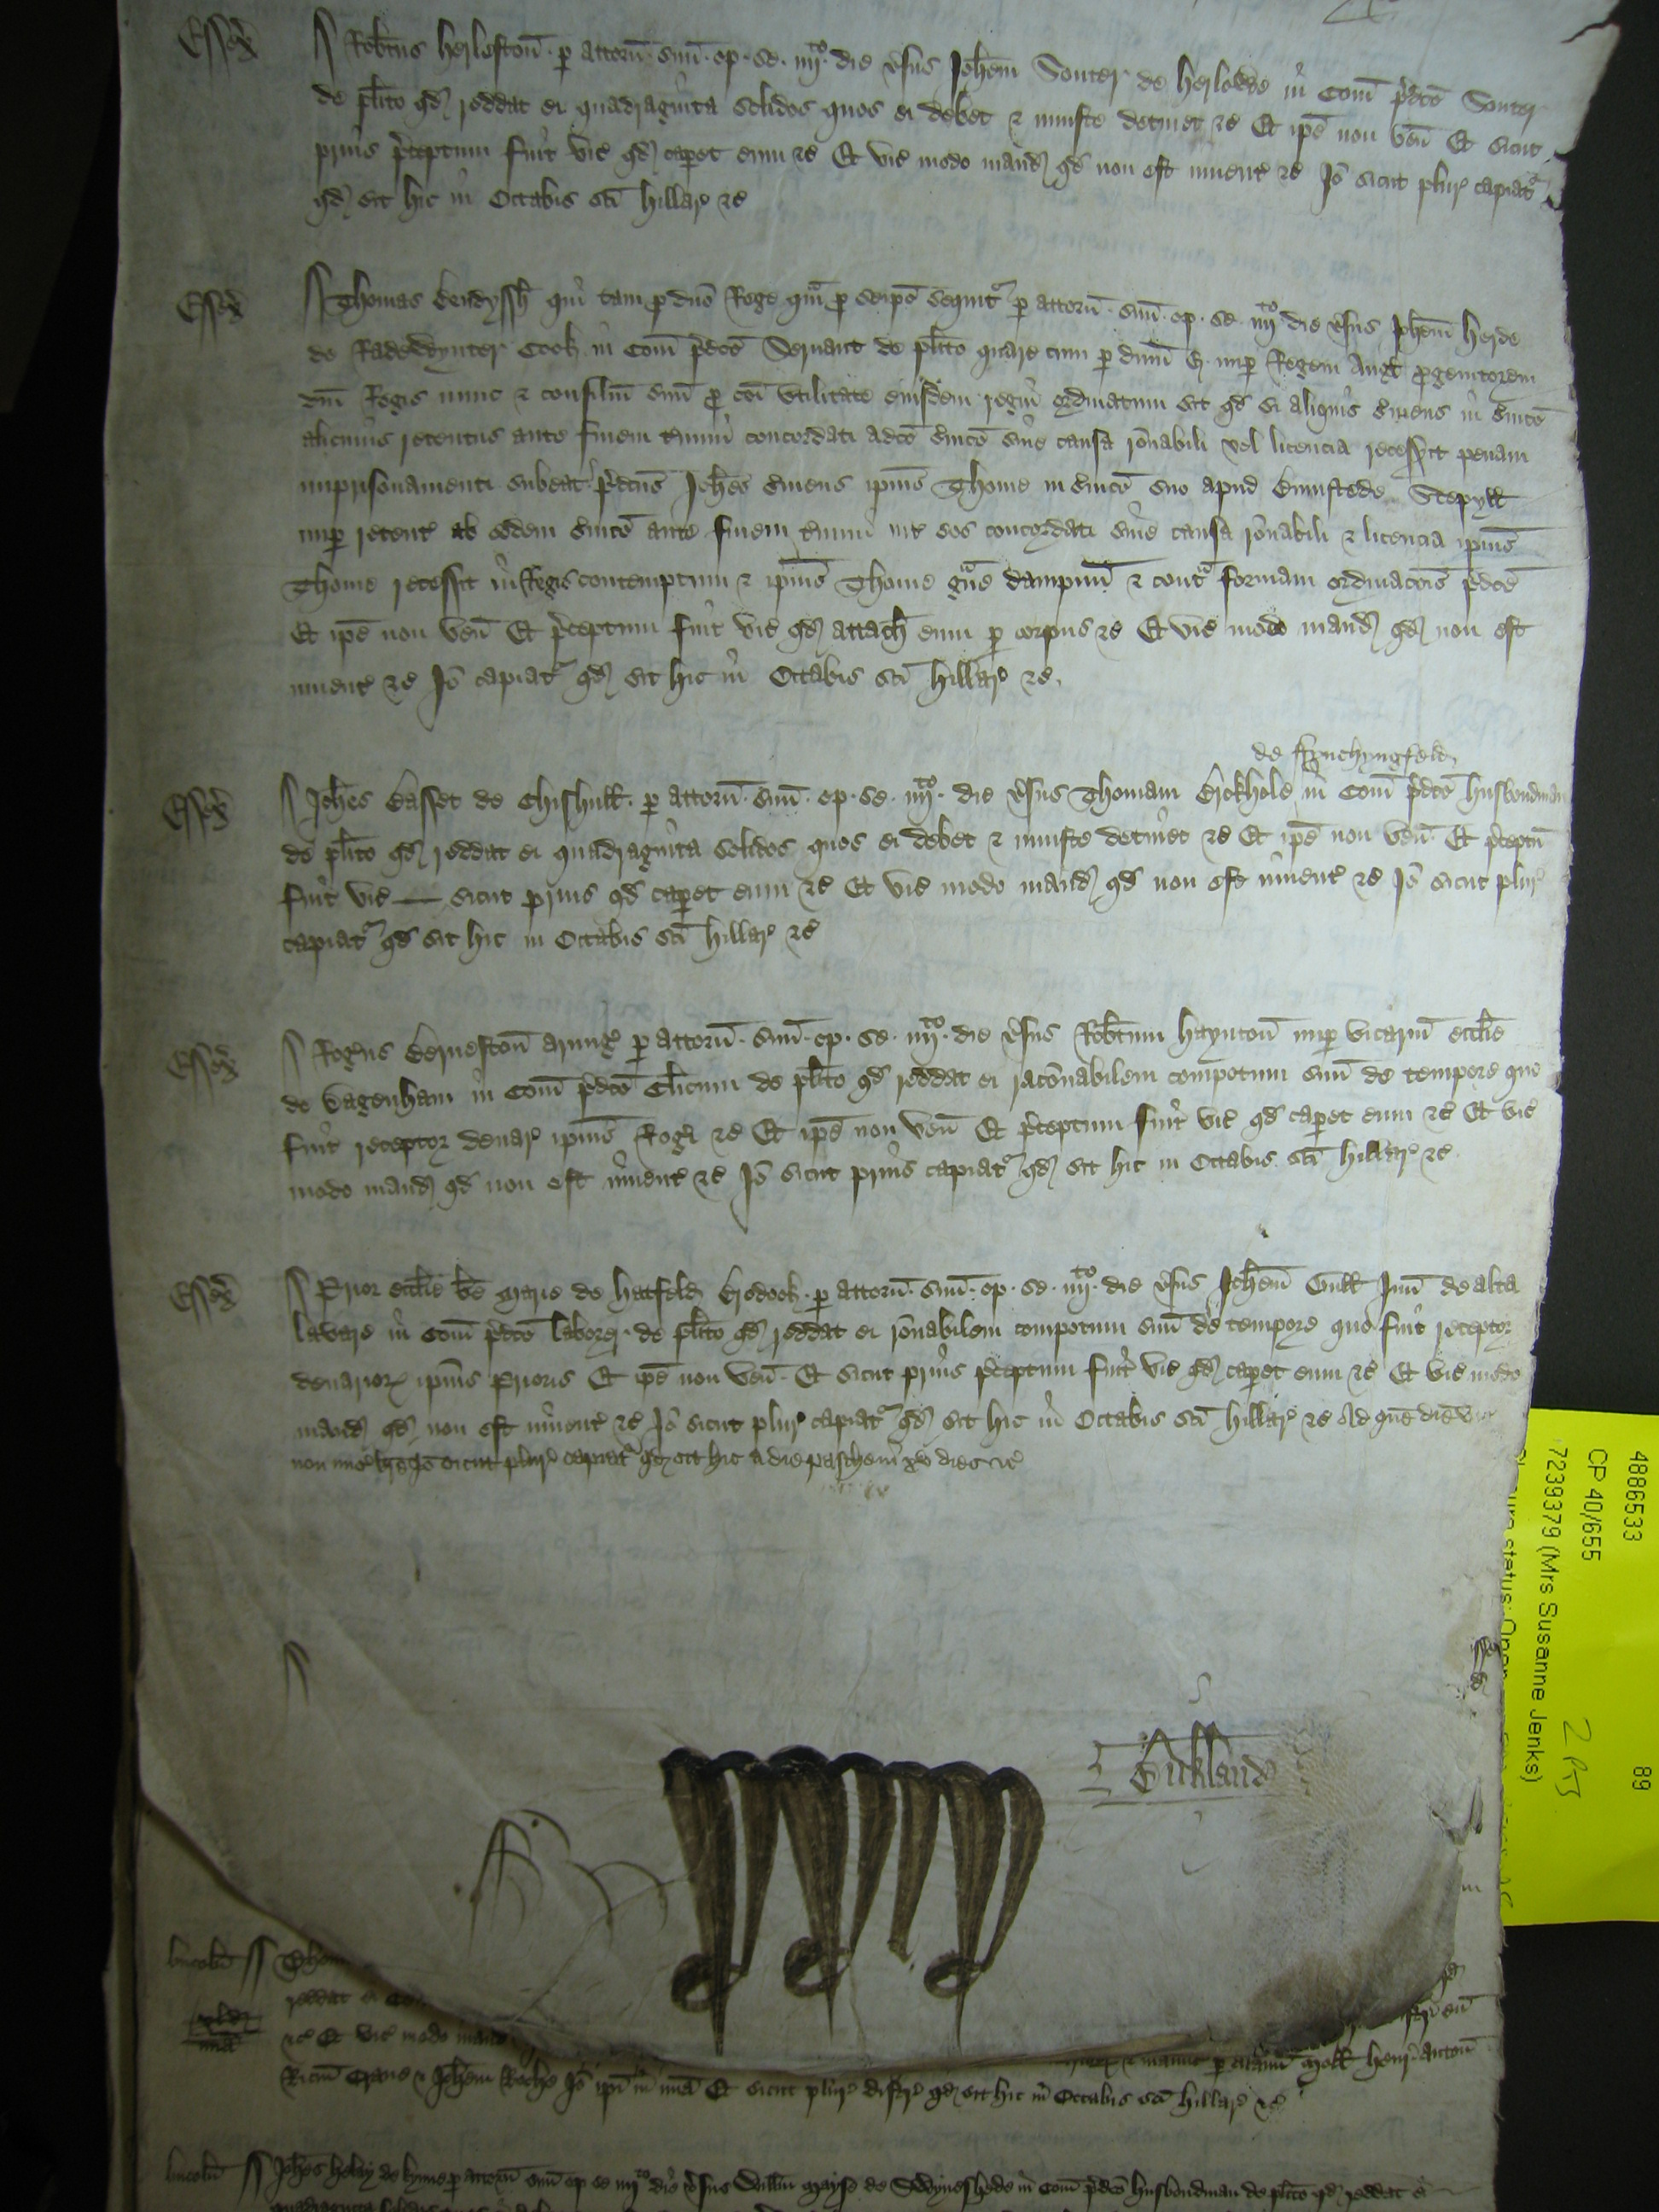 Essex Rob̄tus Herlestoū p attorn̄ suū op se iiij^to die v̄sus Joh̄em Souter de Herlowe in Com̄ p̄dc̄o Souter
de pl̄ito qd reddat ei quadraginta solidos quos ei debet & iniuste detinet &c Et ip̄e non ven̄ Et sicut
prius p̄ceptum fuit vic̄ qd caperet eum &c Et vic̄ modo mand qd non est invent̄ &c Jō sicut plur̄ capiat^r
qd sit hic in Octabis sc̄i Hillar̄ &c
Essex Thomas Bendyssh qui tam p dn̄o Rege qm̄ p seip̄o sequit^r p attorn̄ suū op se iiij^to die v̄sus Joh̄em Herde
de Radewynter Cook in Com̄ p̄dc̄o Servant de pl̄ito quare cum p dnm̄ E nup Regem Angl̄ progenitorem
dn̄i Regis nunc & consiliū suū pro cōi utilitate eiusdem regni ordinatum sit qd si aliquis s̄viens in s̄vic̄o
alicuius retentus ante finem t̄mini concordati a dc̄o s̄vic̄o sine causa rōnabili vel licencia recesserit penam
imprisonamenti subeat p̄dc̄us Joh̄es s̄viens ipius Thome in s̄vic̄o suo apud Bumstede Stepyll
nup retent̄ ab eodem s̄vic̄o ante finem t̄mini int̄ eos concordati sine causa rōnabili & licencia ipius
Thome recessit in Regis contemptum & ipius Thome gr̄ve dampnū & cont^a formam ordinac̄ois p̄dc̄e
Et ip̄e non ven̄ Et p̄ceptum fuit vic̄ qd attach̄ eum p corpus &c Et vic̄ modo mand qd non est
invent̄ &c Jō capiat^r qd sit hic in Octabis sc̄i Hillar̄ &c
de Fynchyngfeld
Essex Joh̄es Basset de Chishull p attorn̄ suū op se iiij^to die v̄sus Thomam Brokhole in Com̄ p̄dc̄o husbondman
de pl̄ito qd reddat ei quadraginta solidos quos ei debet & iniuste detinet &c Et ip̄e non ven̄ Et p̄ceptū
fuit vic̄ — sicut prius qd caperet eum &c Et vic̄ modo mand qd non est invent̄ &c Jō sicut plur̄
capiat^r qd sit hic in Octabis sc̄i Hillar̄ &c
Essex Roḡus Bernestoū armiḡ p attorn̄ suū op se iiij^to die v̄sus Rob̄tum Hayntoū nup vicariū eccl̄ie
de Dagenham in Com̄ p̄dc̄o Cl̄icum de pl̄ito qd reddat ei rac̄onabilem compotum suū de tempore quo
fuit receptor denar̄ ipius Roḡi &c Et ip̄e non ven̄ Et p̄ceptum fuit vic̄ qd caperet eum &c Et vic̄
modo mand qd non est invent̄ &c Jō sicut prius capiat^r qd sit hic in Octabis sc̄i Hillar̄ &c
Essex Prior eccl̄ie b̄e Marie de Hatfeld Brodook p attorn̄ suū op se iiij^to die v̄sus Joh̄em Gull Juñ de alta
lavare in Com̄ p̄dc̄o laborer de pl̄ito qd reddat ei rōnabilem compotum suū de tempore quo fuit receptor
denarior̄ ipius Prioris Et ip̄e non ven̄ Et sicut prius p̄ceptum fuit vic̄ qd caperet eum &c Et vic̄ modo
mand qd non est invent̄ &c Jō sicut plur̄ capiat^r qd sit hic in Octabis sc̄i Hillar̄ &c Ad quē diē vic̄
non mis̄ br̄e Jō sicut plur̄ capiat^r qd sit hic a die pasche in xv dies &c
Lincoln̄ Thom
reddat ei
&c Et vic̄ modo mand
Ric̄m & Joh̄em Et sicut plur̄ distr̄ qd sit hic in Octabis sc̄i Hillar̄ &c
Lincoln̄ Joh̄es de p attorn̄ suū op se iiij^to die v̄sus Will̄m de Swyneshede in Com̄ p̄dc̄o husbondman de pl̄ito qd reddat ei
4886533 89
CP 40/655
7239379 (Mrs Susanne Jenks)